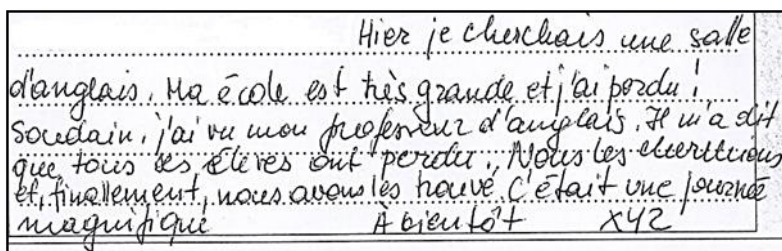 Hier je cherchais une salle
d'anglais. Ma école est très grande et j'ai perdu!
Soudain, j'ai vu mon professeur d'anglais. Il m'a dit
que tous ses élèves ont perdu. Nous les cherchions
et, finallement, nous avons les trouvé. C'était une journée
magnifique À bientôt XYZ